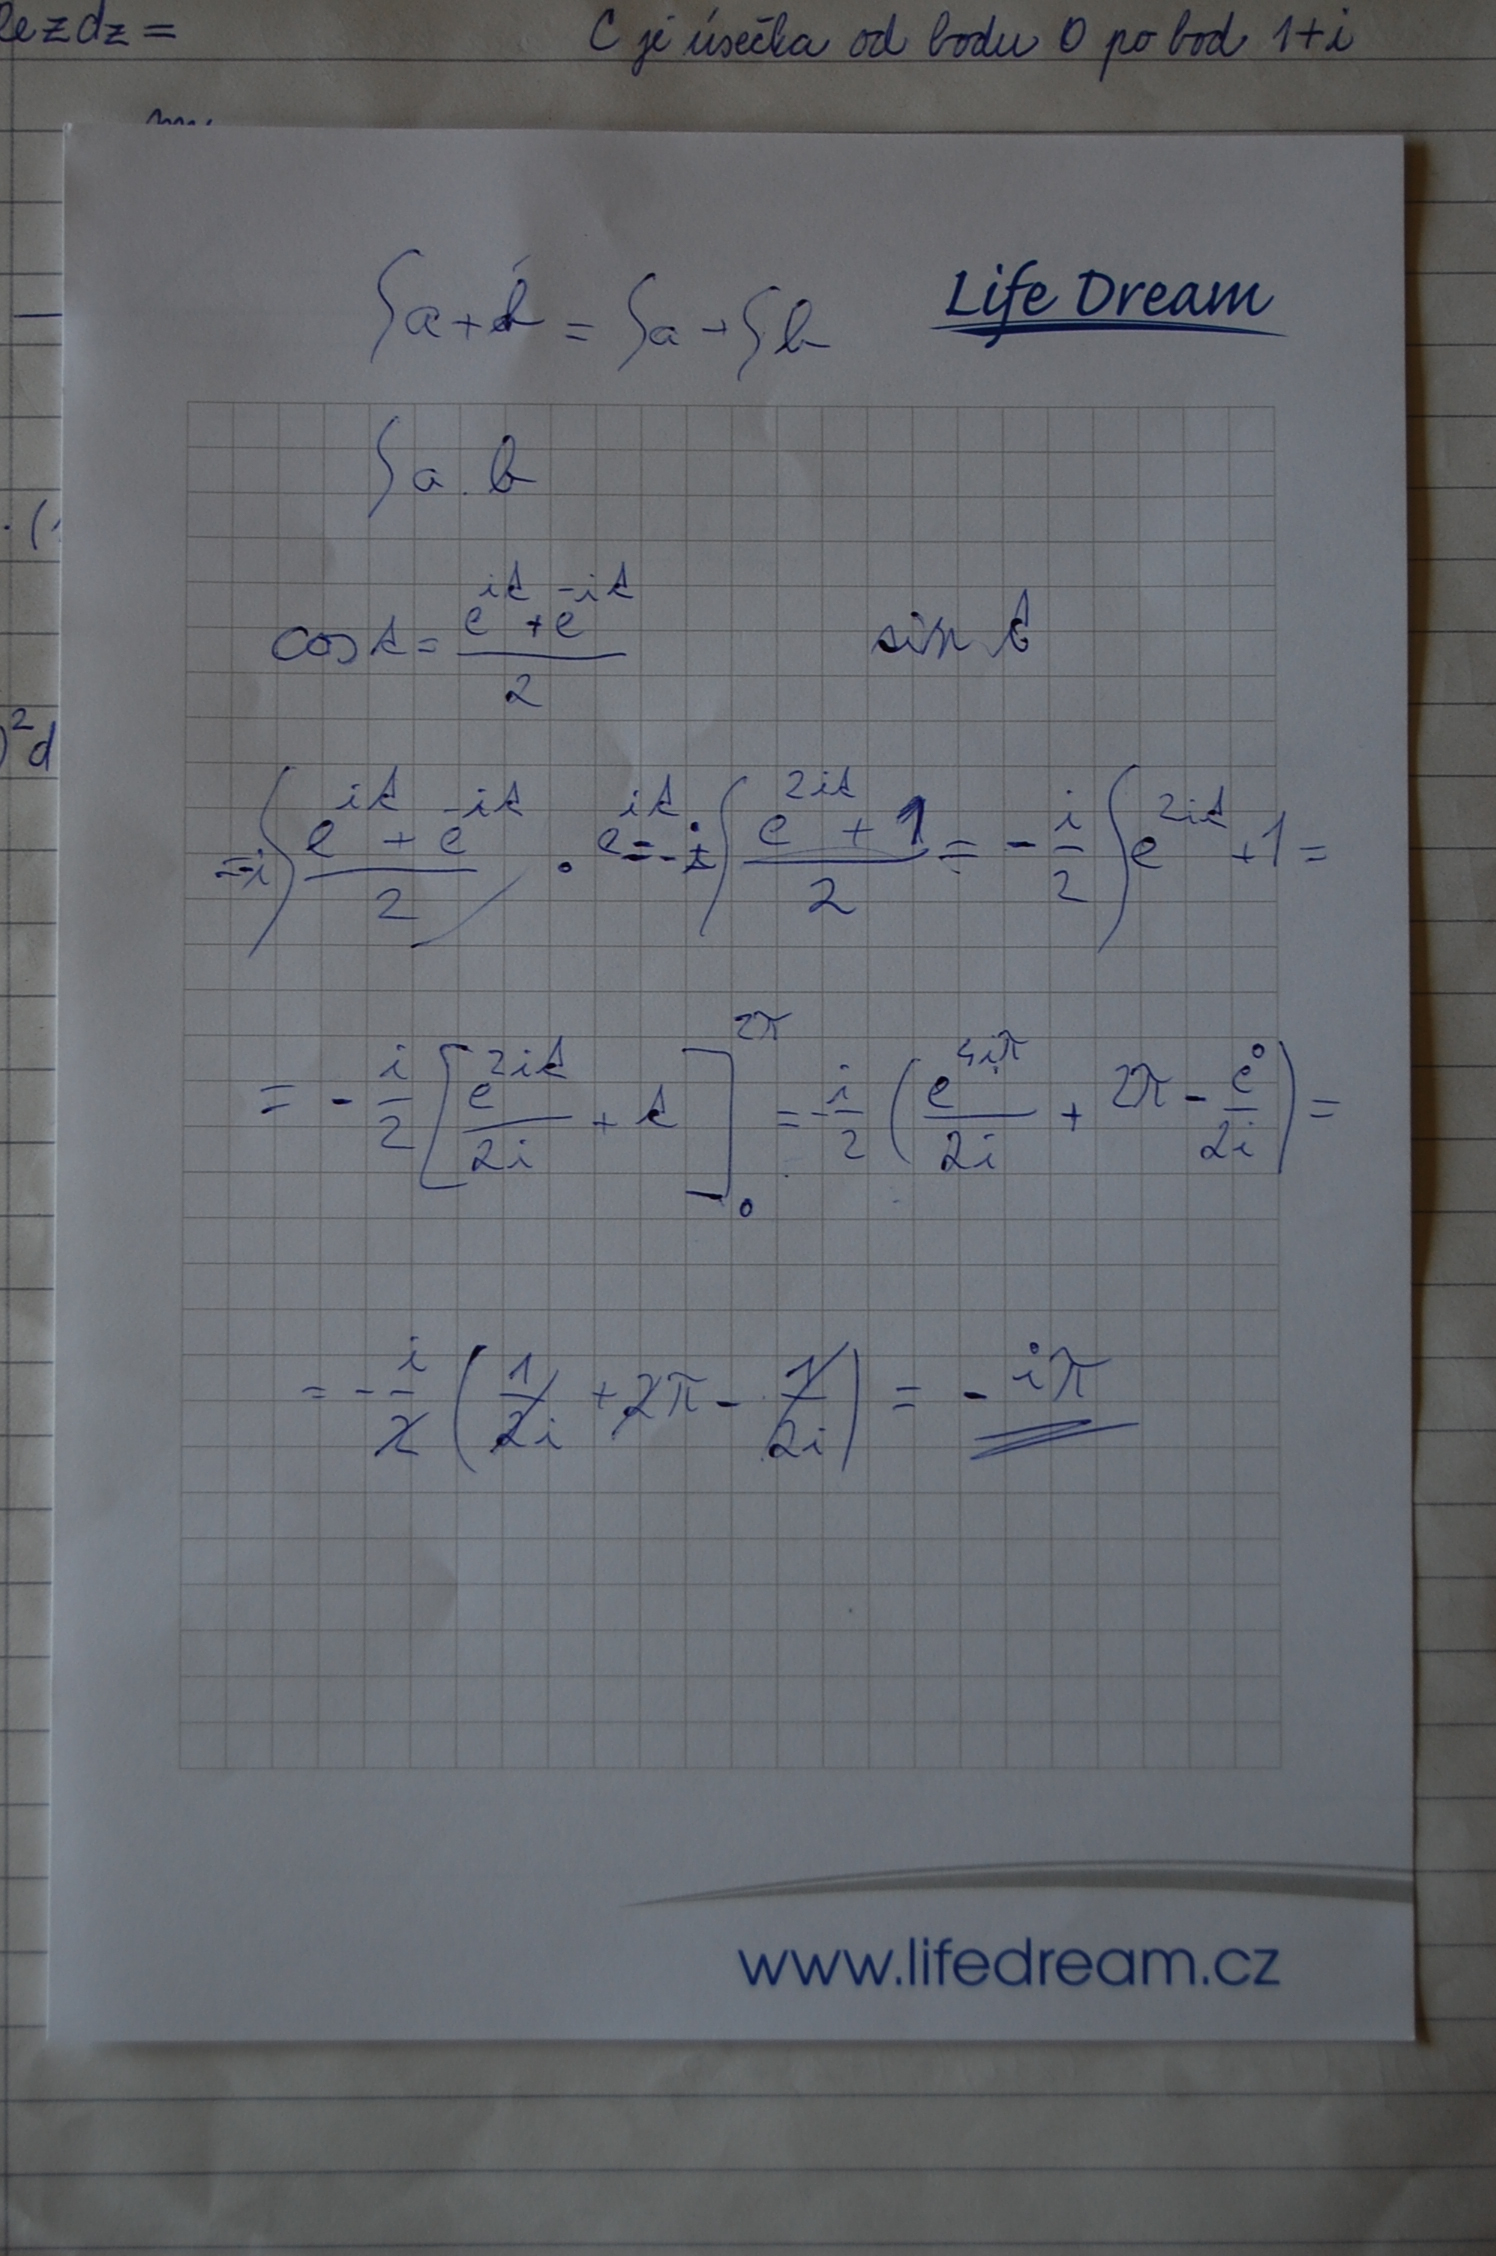 Re z dz = C je úsečka od bodu 0 po bod 1+i
Life Dream
∫a+b = ∫a + ∫b
∫a.b
cos t = (e^{it} + e^{-it})/2 sin t
= -i ∫ (e^{it} + e^{-it})/2 · e^{it} = -i ∫ (e^{2it} + 1)/2 = - i/2 ∫ e^{2it} + 1 =
)² d
= - i/2 [e^{2it}/2i + t]_0^{2π} = - i/2 (e^{4iπ}/2i + 2π - e^0/2i) =
= - i/2 (1/2i + 2π - 1/2i) = - iπ
www.lifedream.cz